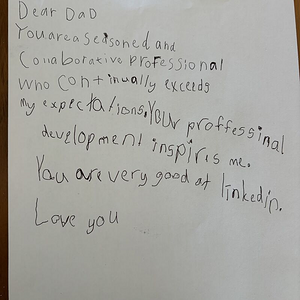 Dear DaD
You are a seasoned and
Collaborative professional
who continually exceeds
my expectations. Your proffessinal
development inspires me.
You are very good at linkedin.
Love you